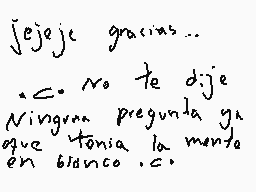 jejeje gracias..
.c. No te dije
Ninguna pregunta ya
que tenia la mente
en blanco .c.